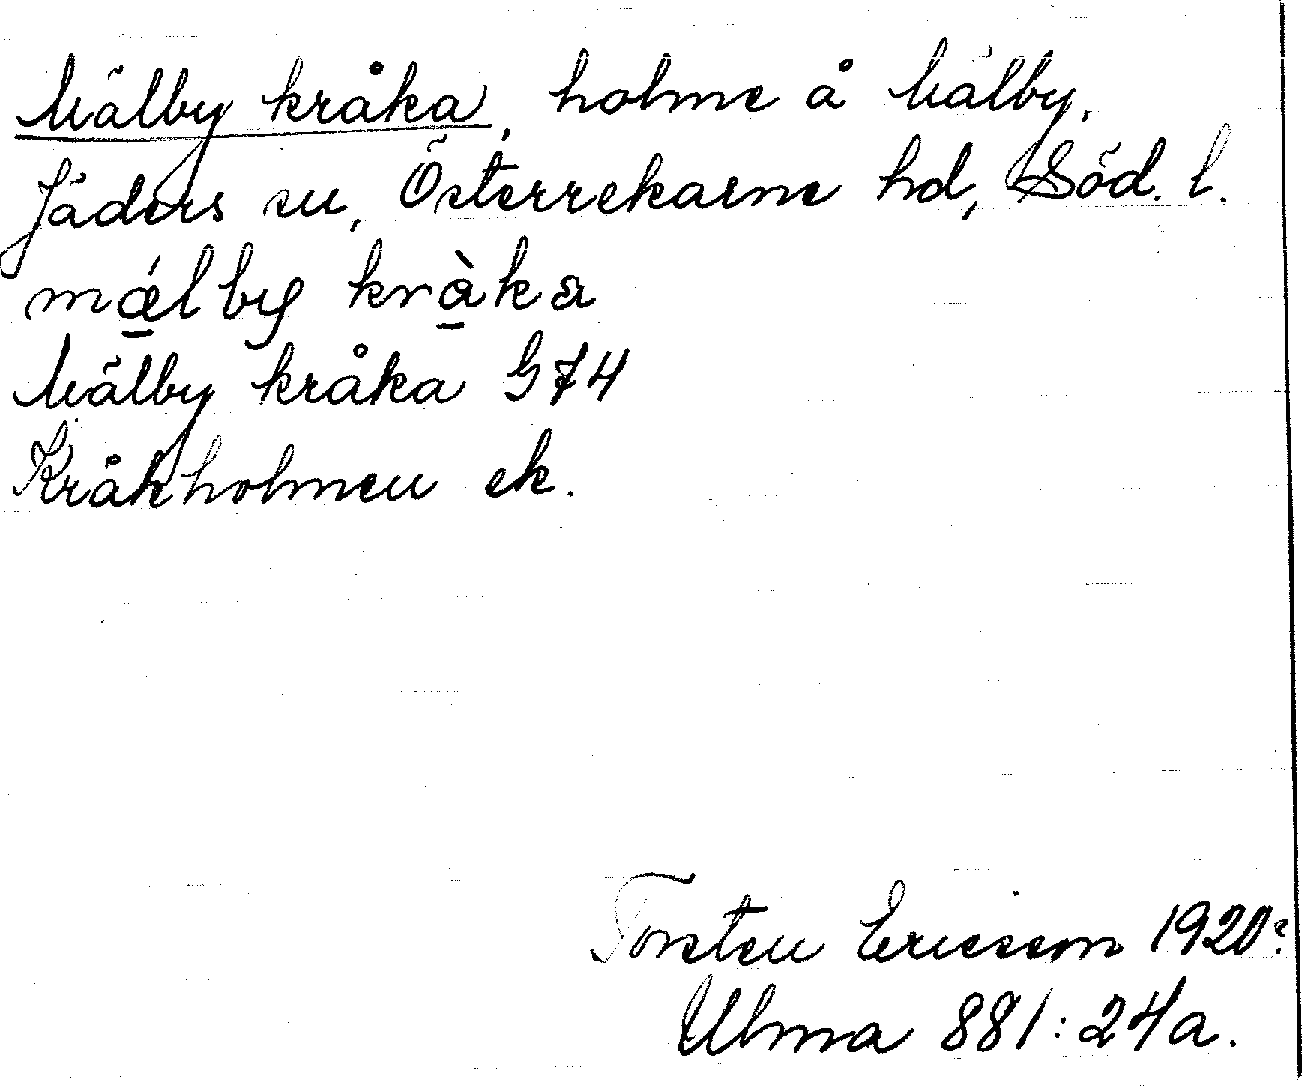 Mälby kråka, holme å Mälby,
Jäders sn, Österrekarne hd, Söd. l.
mǽlby kràka
Mälby kråka G74
Kråkholmen ek.
Torsten Ericsson 1920?
Ulma 881:24a.